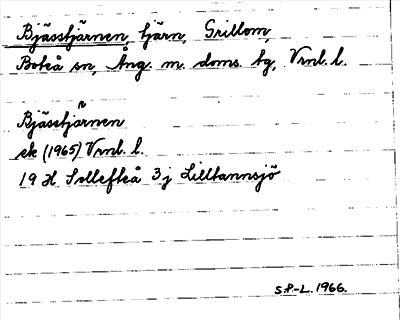 Bjässtjärnen, tjärn, Grillom,
Boteå sn, Ång. m. doms. tg, Vrnl. l.
Bjässtjärnen
ek (1965) Vrnl. l.
19 H Sollefteå 3j Lilltannsjö
S.P-L. 1966.